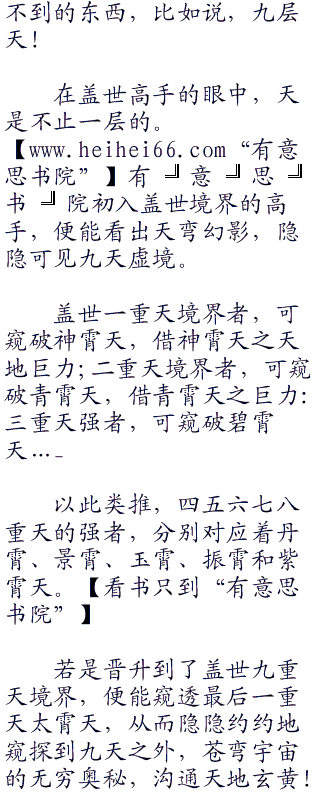 不到的东西，比如说，九层
天！
在盖世高手的眼中，天
是不止一层的。
【www.heihei66.com“有意
思书院”】有╝意╝思╝
书╝院初入盖世境界的高
手，便能看出天弯幻影，隐
隐可见九天虚境。
盖世一重天境界者，可
窥破神霄天，借神霄天之天
地巨力；二重天境界者，可窥
破青霄天，借青霄天之巨力：
三重天强者，可窥破碧霄
天…_
以此类推，四五六七八
重天的强者，分别对应着丹
霄、景霄、玉霄、振霄和紫
霄天。【看书只到“有意思
书院”】
若是晋升到了盖世九重
天境界，便能窥透最后一重
天太霄天，从而隐隐约约地
窥探到九天之外，苍弯宇宙
的无穷奥秘，沟通天地玄黄！